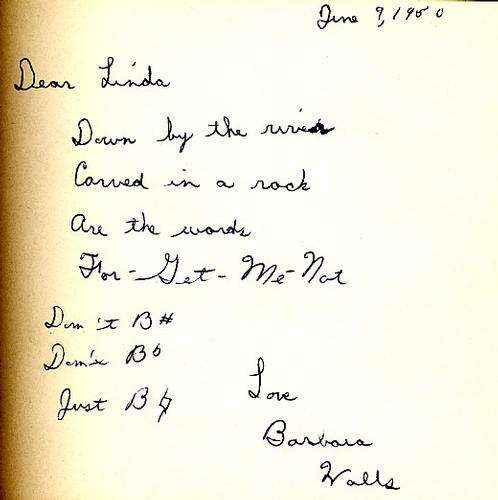 June 9, 1950
Dear Linda
Down by the river
Carved in a rock
Are the words
For-Get-Me-Not
Don't B#
Don't B♭
Just B♮
Love
Barbara
Walls